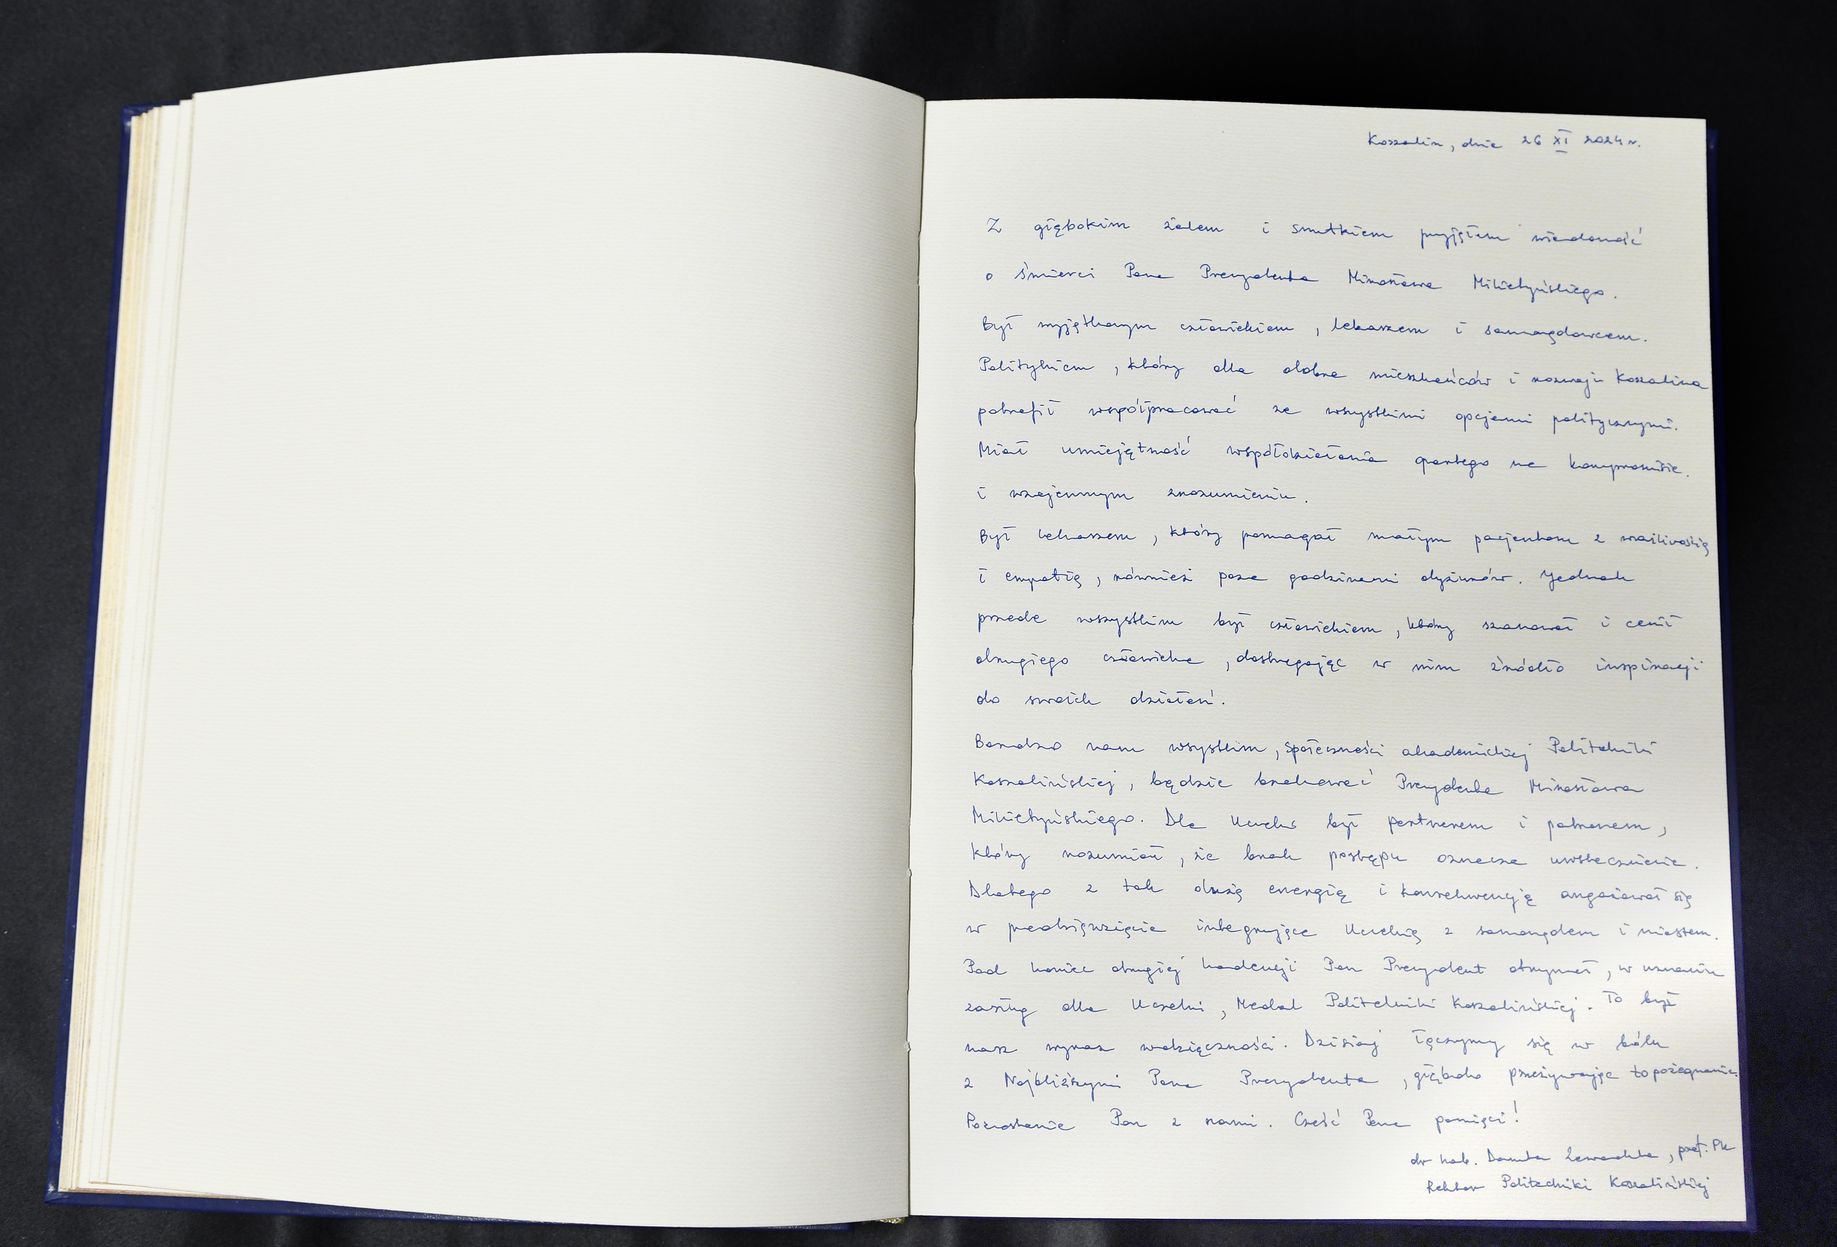 Koszalin, dnia 26 XI 2024 r.
Z głębokim żalem i smutkiem przyjęłam wiadomość
o śmierci Pana Prezydenta Mirosława Mikietyńskiego.
Był wyjątkowym człowiekiem, lekarzem i samorządowcem.
Politykiem, który dla dobra mieszkańców i rozwoju Koszalina
potrafił współpracować ze wszystkimi opcjami politycznymi.
Miał umiejętność współdziałania opartego na kompromisie
i wzajemnym zrozumieniu.
Był lekarzem, który pomagał małym pacjentom z wrażliwością
i empatią, również poza godzinami dyżurów. Jednak
przede wszystkim był człowiekiem, który szanował i cenił
drugiego człowieka, dostrzegając w nim źródło inspiracji
do swoich działań.
Bardzo nam wszystkim, społeczności akademickiej Politechniki
Koszalińskiej, będzie brakować Prezydenta Mirosława
Mikietyńskiego. Dla Uczelni był partnerem i patronem,
który rozumiał, że brak postępu oznacza uwstecznienie.
Dlatego z tak dużą energią i konsekwencją angażował się
w przedsięwzięcia integrujące Uczelnię z samorządem i miastem.
Pod koniec drugiej kadencji Pan Prezydent otrzymał, w uznaniu
zasług dla Uczelni, Medal Politechniki Koszalińskiej. To był
nasz wyraz wdzięczności. Dzisiaj łączymy się w bólu
z Najbliższymi Pana Prezydenta, głęboko przeżywając to pożegnanie.
Pozostanie Pan z nami. Cześć Pana pamięci!
dr hab. Danuta Zawadzka, prof. PK
Rektor Politechniki Koszalińskiej